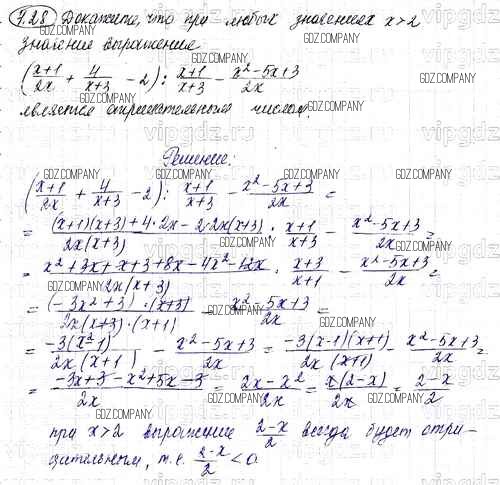 7.28 Докажите, что при любых значениях x>2
значение выражения
((x+1)/2x + 4/(x+3) - 2) : (x+1)/(x+3) - (x²-5x+3)/2x
является отрицательным числом.
Решение:
((x+1)/2x + 4/(x+3) - 2) : (x+1)/(x+3) - (x²-5x+3)/2x =
= ((x+1)(x+3)+4·2x-2·2x(x+3))/2x(x+3) : (x+1)/(x+3) - (x²-5x+3)/2x =
= (x²+3x+x+3+8x-4x²-12x)/2x(x+3) · (x+3)/(x+1) - (x²-5x+3)/2x =
= (-3x²+3)·(x+3)/2x(x+3)·(x+1) - (x²-5x+3)/2x =
= -3(x²-1)/2x(x+1) - (x²-5x+3)/2x = -3(x-1)(x+1)/2x(x+1) - (x²-5x+3)/2x =
= (-3x+3-x²+5x-3)/2x = (2x-x²)/2x = x(2-x)/2x = (2-x)/2
при x>2 выражение (2-x)/2 всегда будет отри-
цательным, т.е. (2-x)/2 < 0.
GDZ.COMPANY
vipgdz.ru